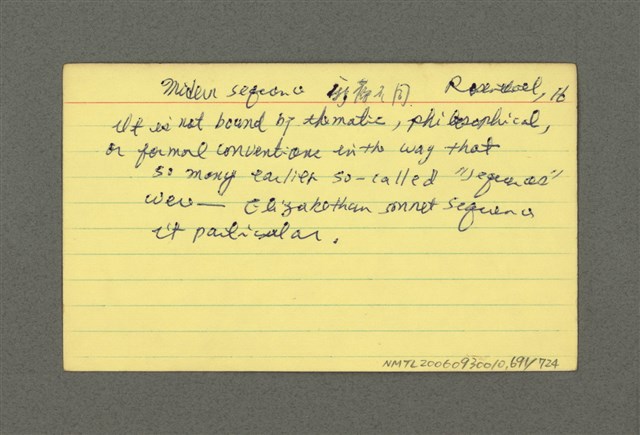 Modern sequence 新舊不同. Rosenthal, 16
It is not bound by thematic, philosophical,
or formal conventions in the way that
so many earlier so-called "sequences"
were— Elizabethan sonnet sequence
in particular.
NMTL20060930010,691/724